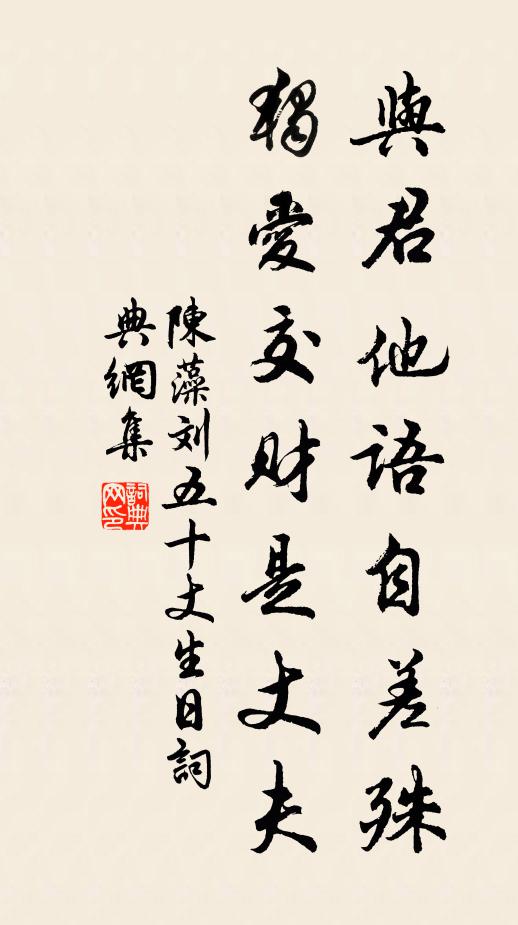 與君他語自差殊
獨愛交財是丈夫
陳藻刘五十丈生日詞
典網集
詞典
网印